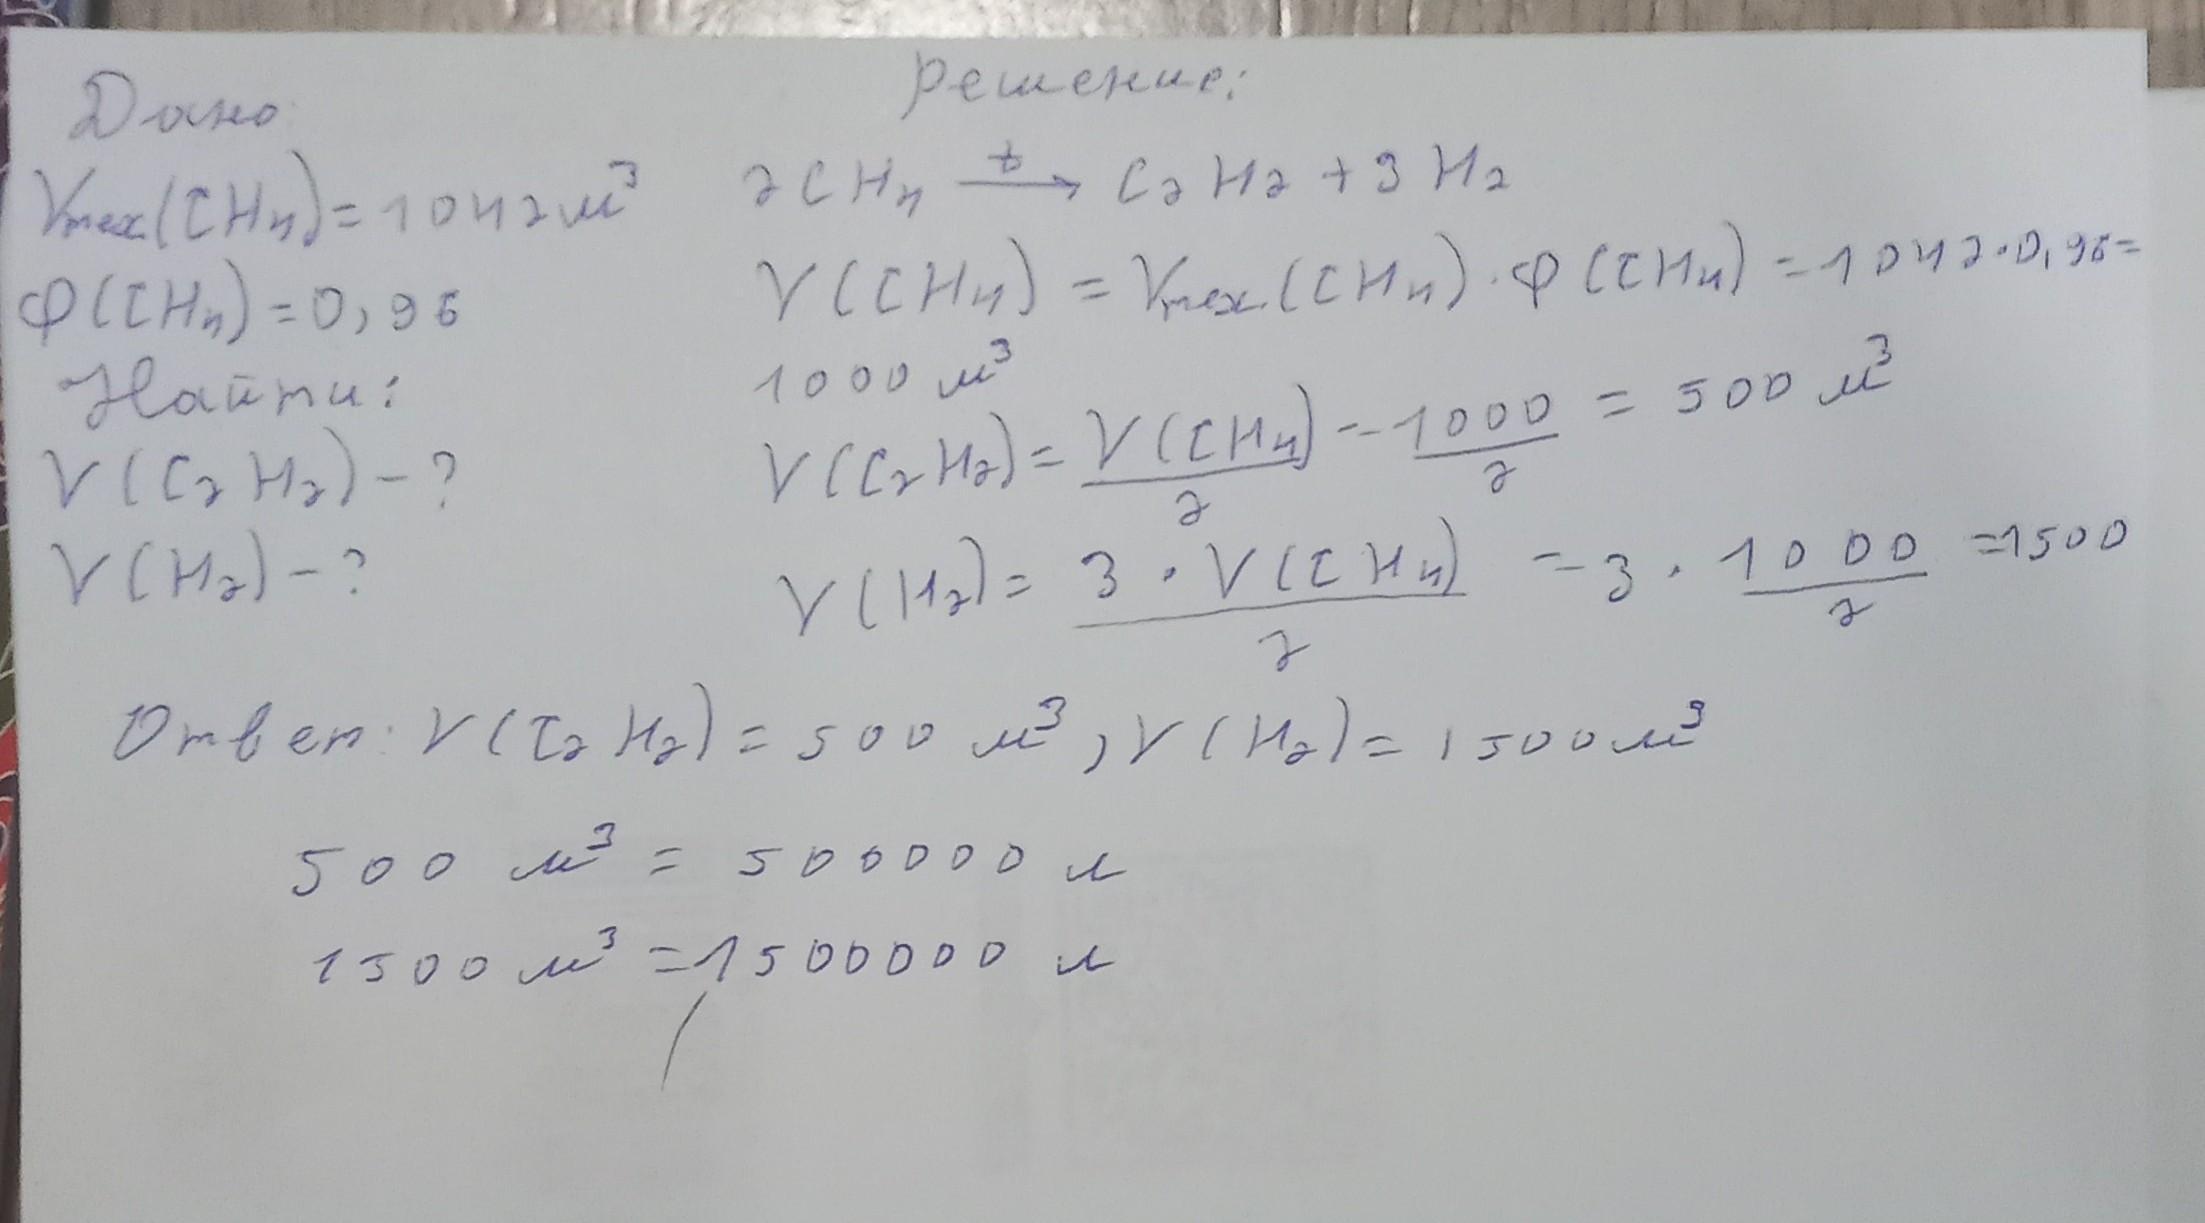 Дано:
Vmex(CH₄)=1042м³
φ(CH₄)=0,96
Найти:
V(C₂H₂)-?
V(H₂)-?
Решение:
2CH₄ →t C₂H₂+3H₂
V(CH₄)=Vmex.(CH₄)·φ(CH₄)=1042·0,96=
1000 м³
V(C₂H₂)=V(CH₄)/2 = 1000/2 = 500 м³
V(H₂)= 3·V(CH₄)/2 = 3·1000/2 =1500
Ответ: V(C₂H₂)=500 м³, V(H₂)=1500м³
500 м³ = 500000 л
1500 м³ =1500000 л